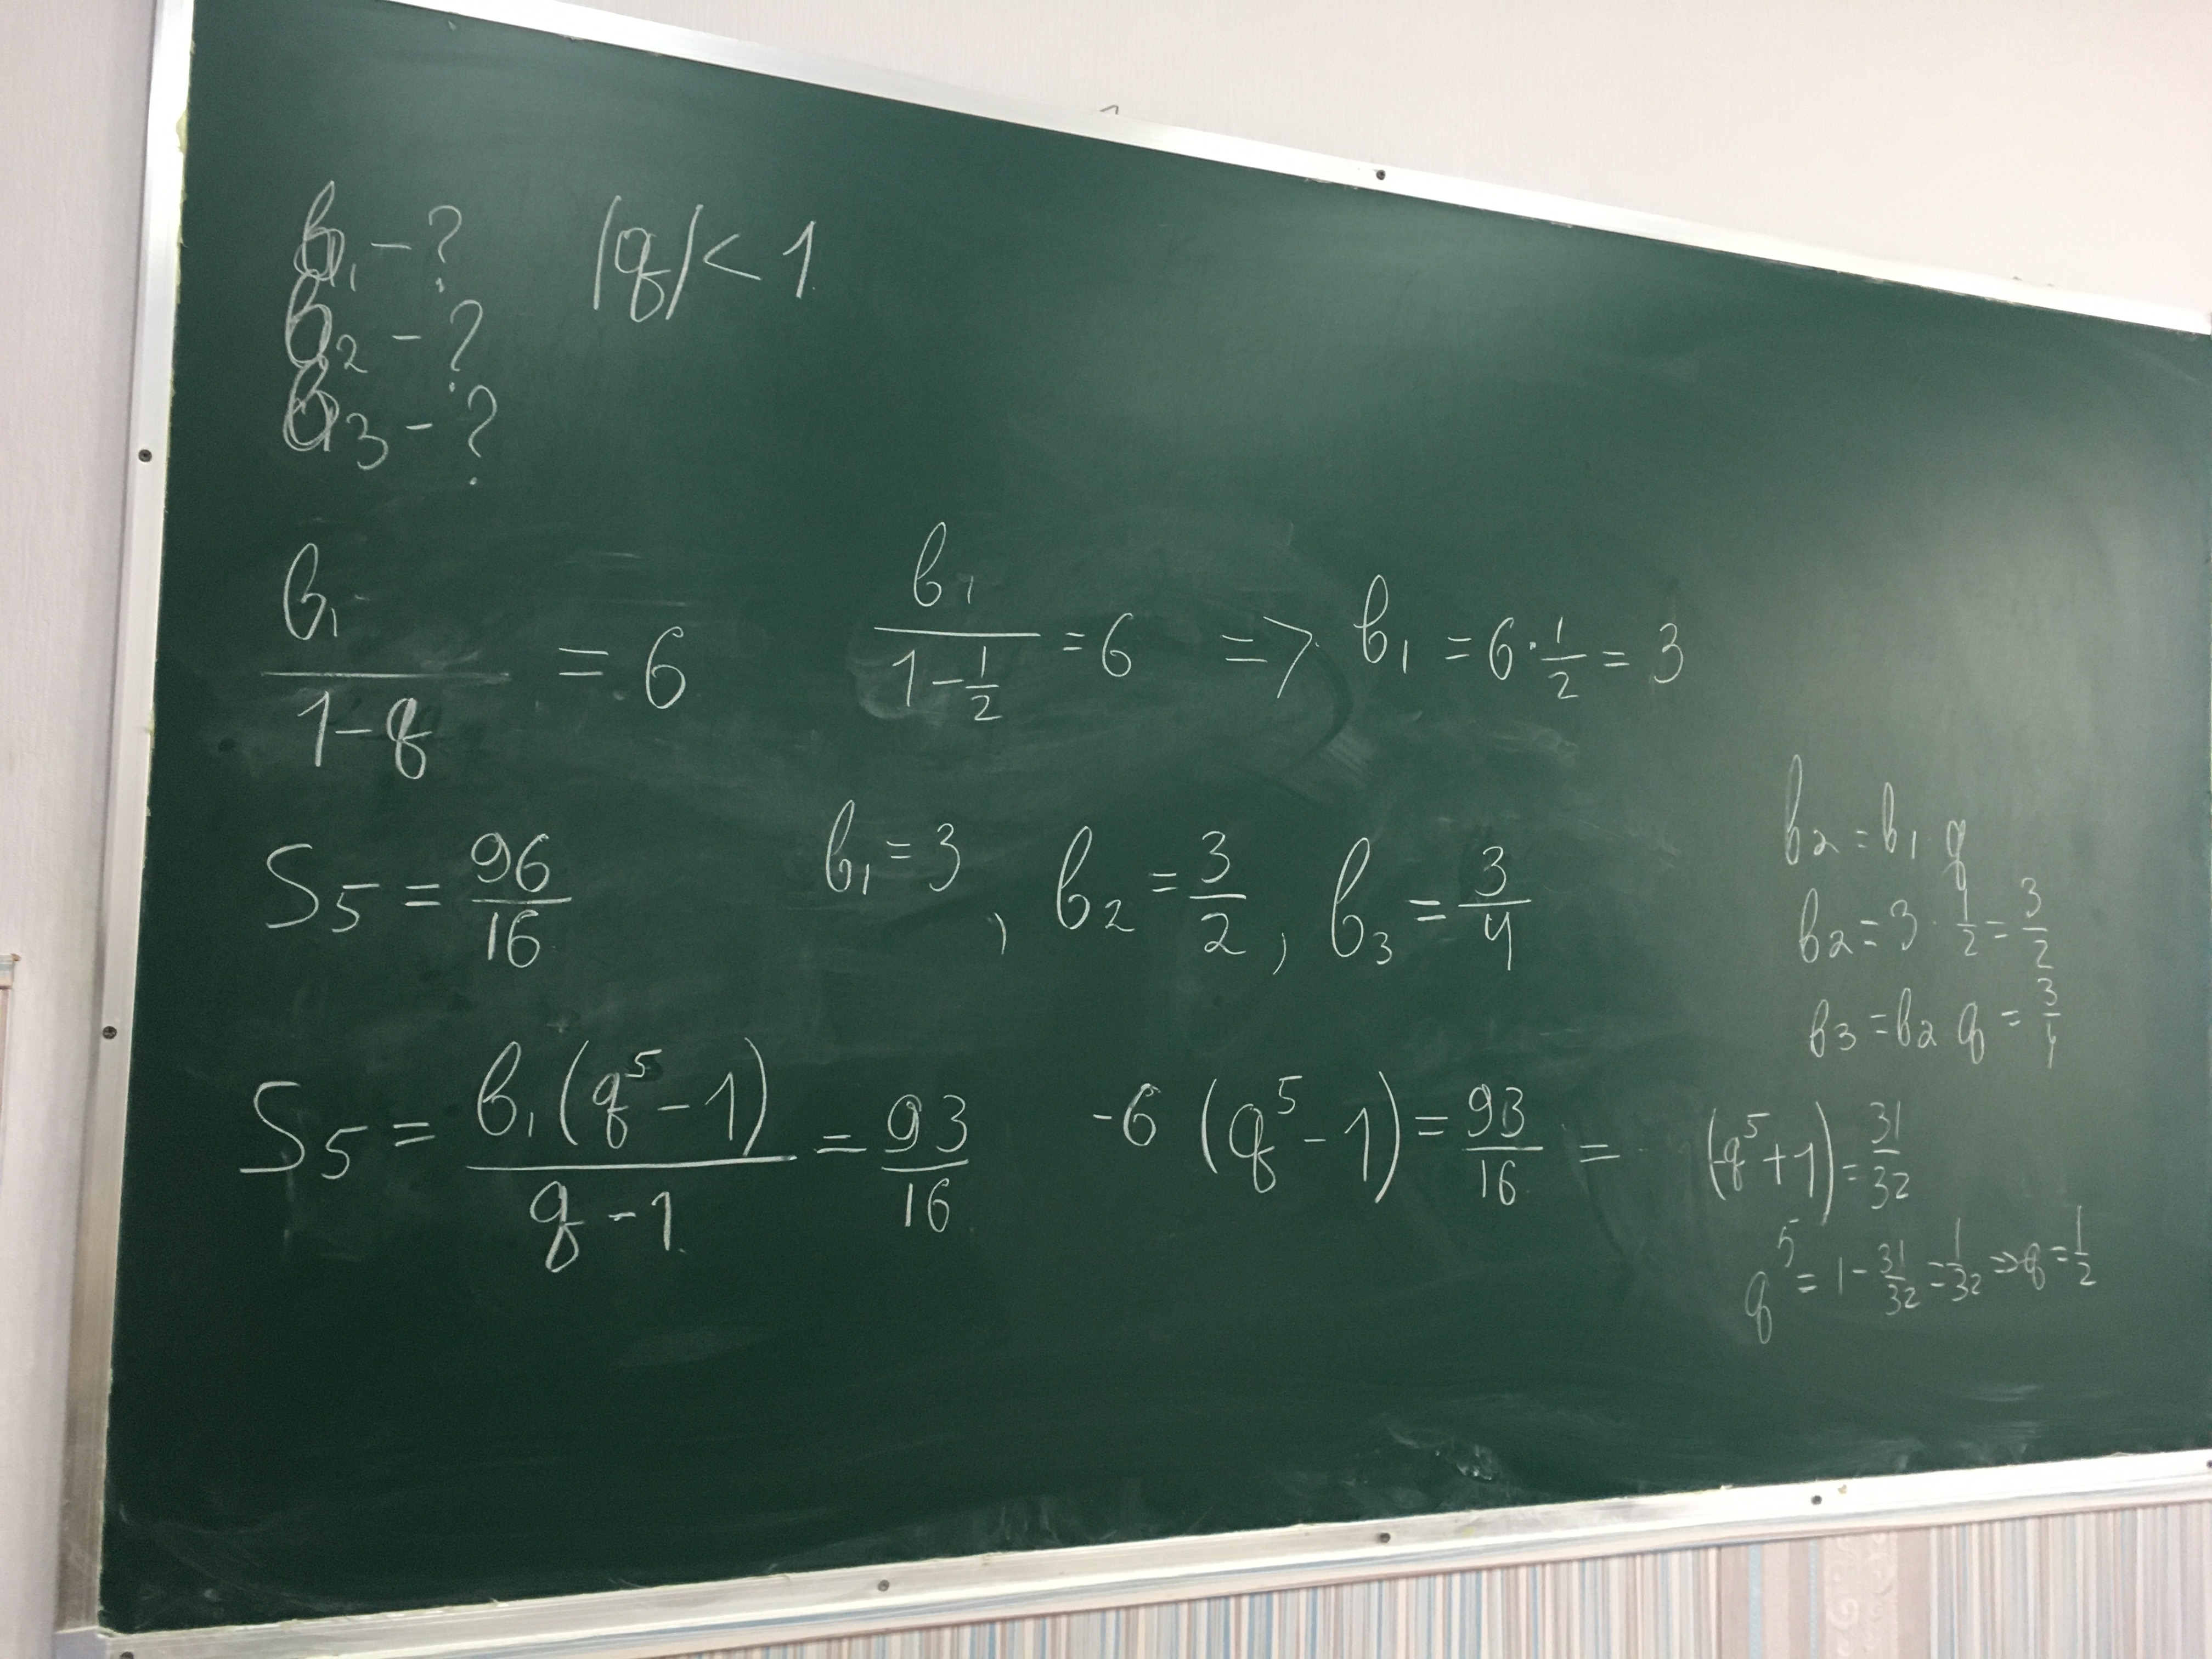 b₁ - ? |q| < 1
b₂ - ?
b₃ - ?
b₁/(1-q) = 6
b₁/(1-1/2) = 6 => b₁ = 6·1/2 = 3
S₅ = 96/16
b₁ = 3, b₂ = 3/2, b₃ = 3/4
b₂ = b₁·q
b₂ = 3·1/2 = 3/2
b₃ = b₂ q = 3/4
S₅ = b₁(q⁵-1)/(q-1) = 93/16
-6(q⁵-1) = 93/16 = (-q⁵+1) = 31/32
q⁵ = 1 - 31/32 = 1/32 => q = 1/2